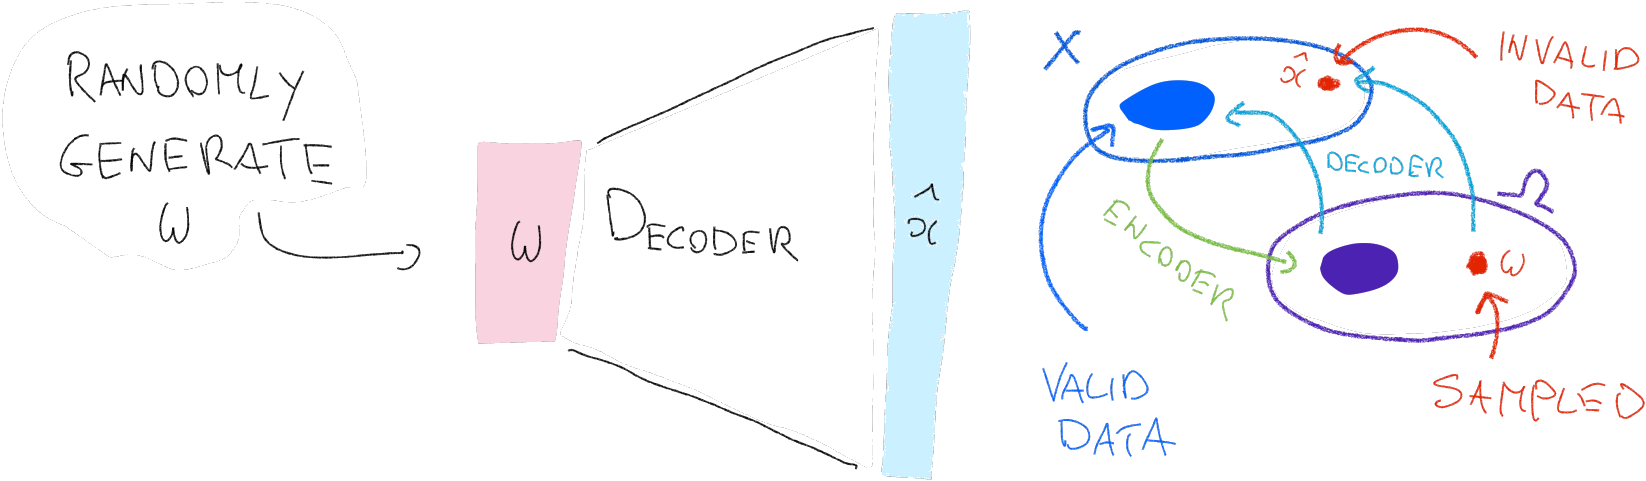 RANDOMLY
GENERATE
ω
ω
DECODER
x̂
X
x̂
INVALID
DATA
DECODER
ENCODER
Ω
ω
VALID
DATA
SAMPLED